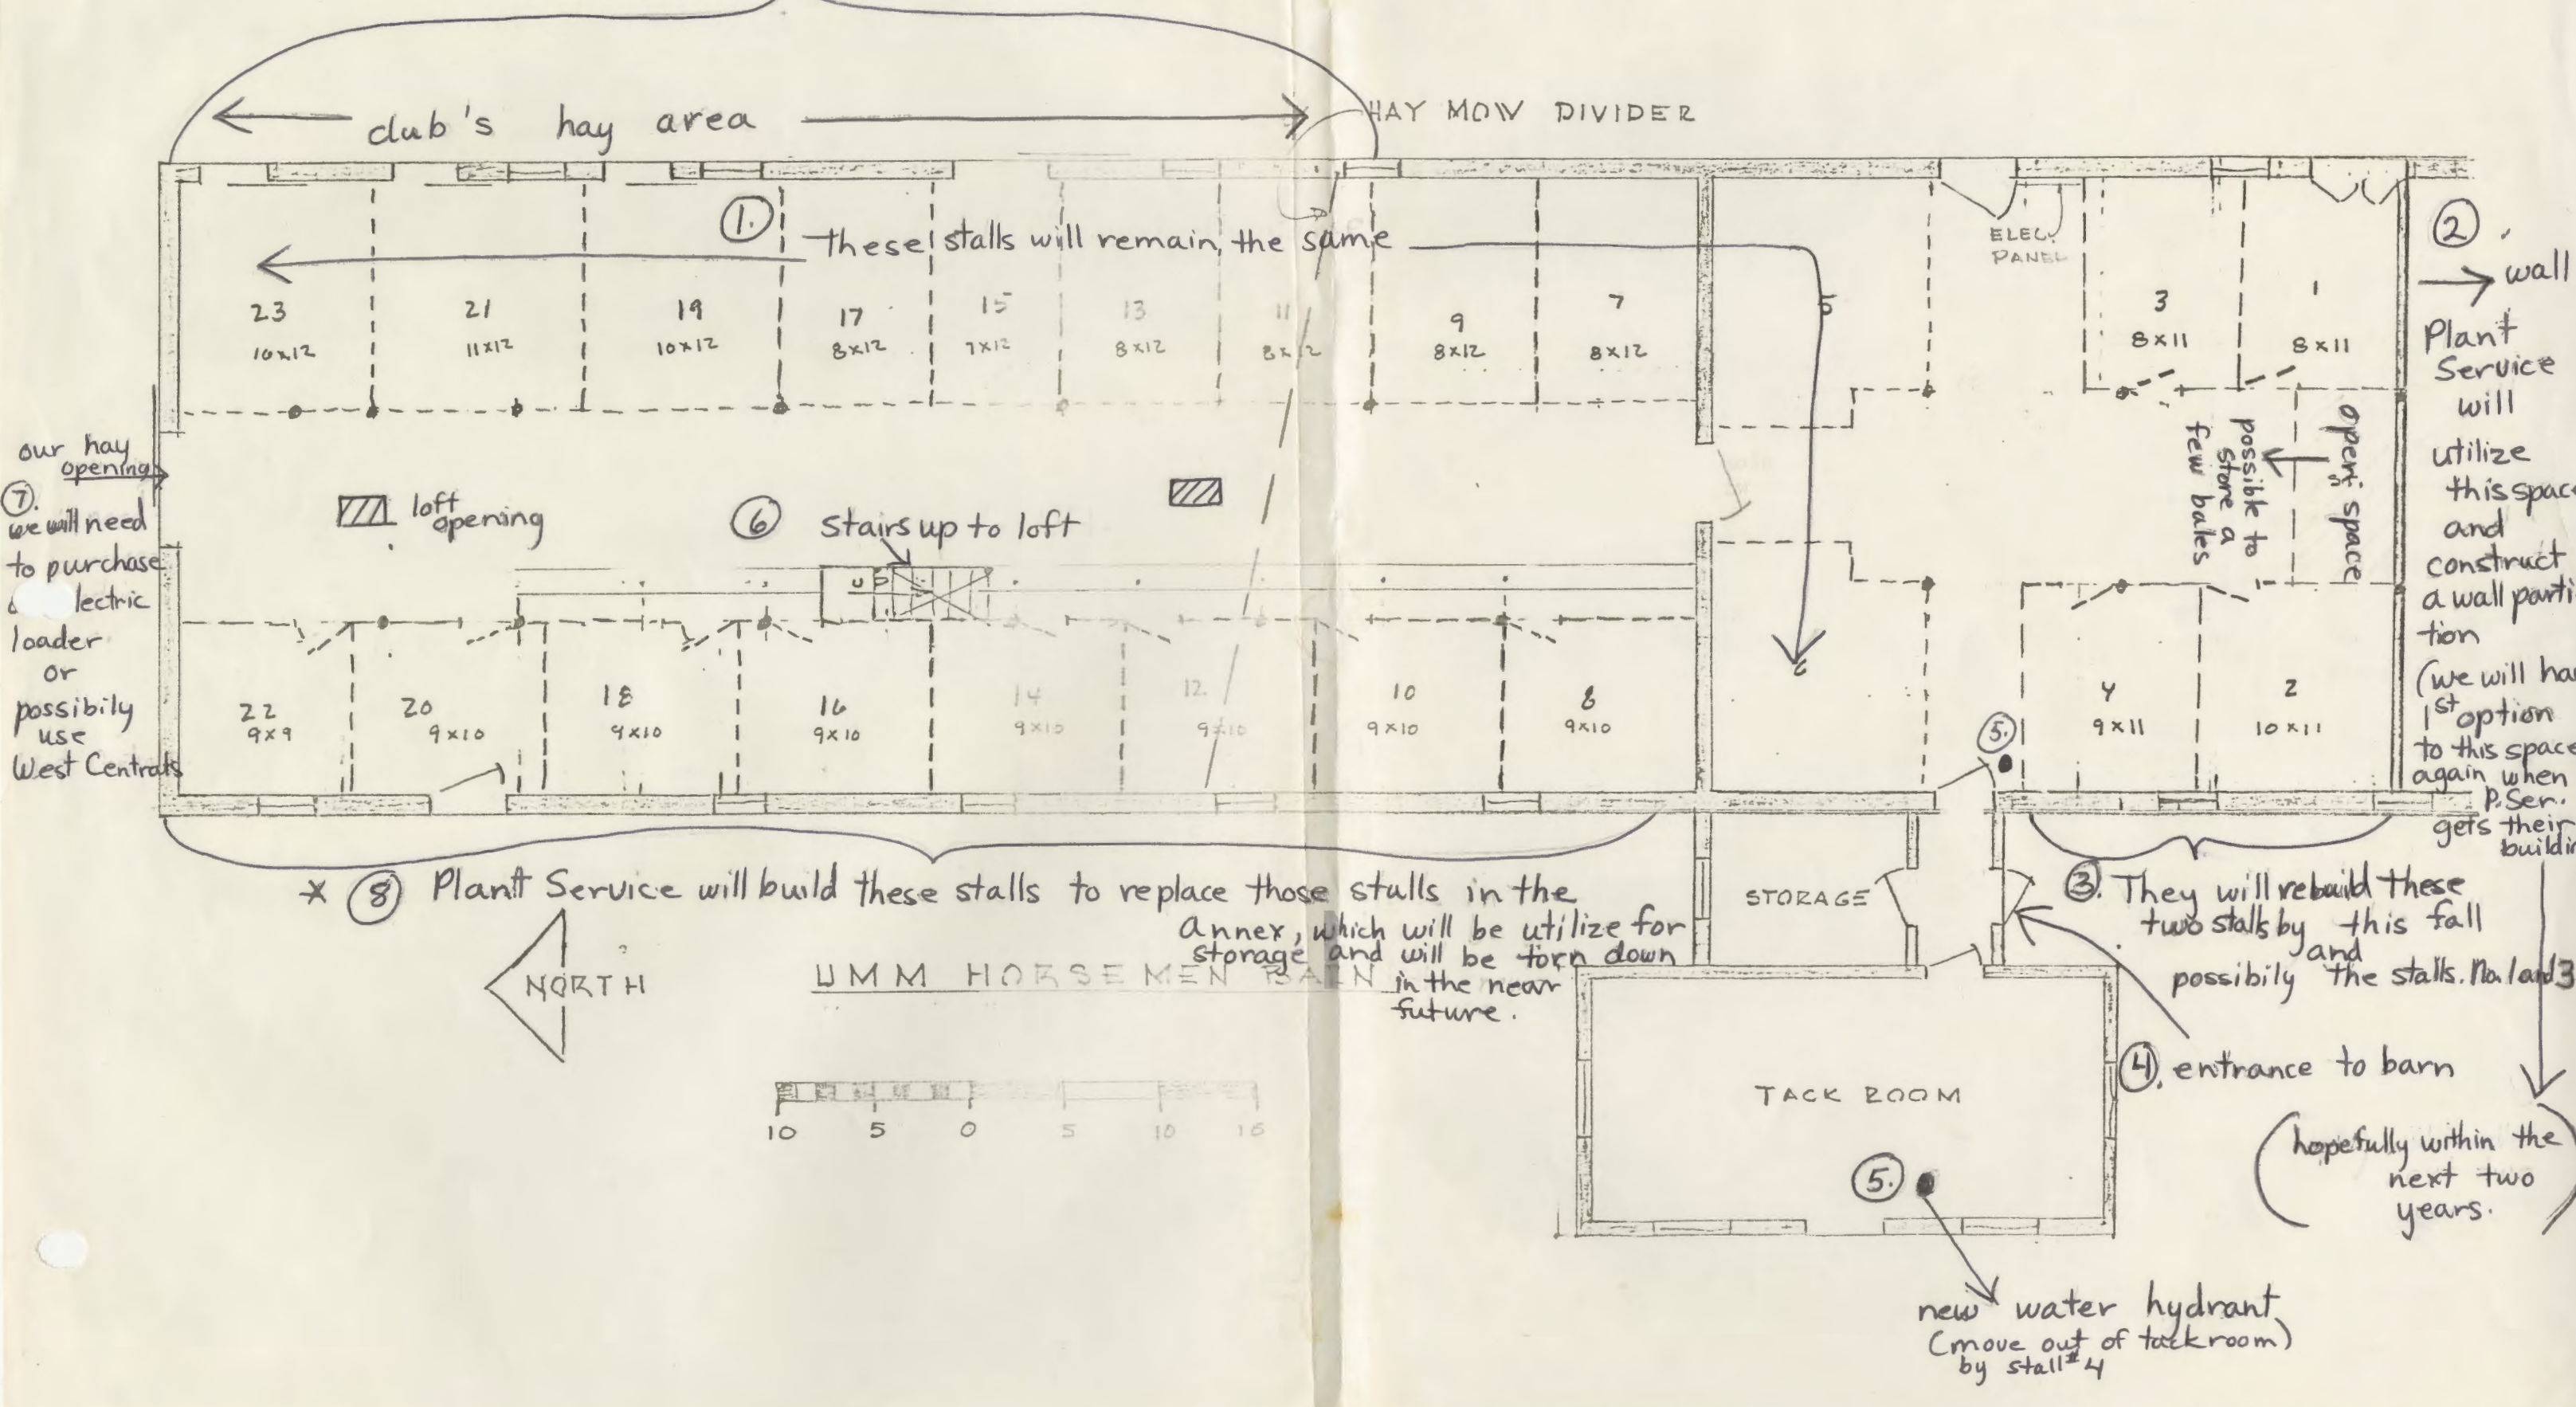 club's hay area
HAY MOW DIVIDER
1.
These stalls will remain the same
ELEC.
PANEL
23
10x12
21
11x12
19
10x12
17
8x12
15
7x12
13
8x12
11
8x12
9
8x12
7
8x12
5
3
8x11
1
8x11
2.
wall
Plant
Service
will
utilize
this space
and
construct
a wall parti
tion
(we will ha
1st option
to this space
again when
P. Ser.
gets their
buildin
(hopefully within the
next two
years.)
open space
possible to
store a
few bales
our hay
opening
7.
we will need
to purchase
lectric
loader
or
possibily
use
West Centrals
loft
opening
6
stairs up to loft
UP
22
9x9
20
9x10
18
9x10
16
9x10
14
9x10
12
9x10
10
9x10
8
9x10
6
4
9x11
2
10x11
5.
* 8 Plantt Service will build these stalls to replace those stalls in the
annex, which will be utilize for
storage and will be torn down
in the near
future.
STORAGE
3. They will rebuild these
two stalls by this fall
and
possibily the stalls. No. 1 and 3
NORTH
UMM HORSEMEN BARN
4. entrance to barn
10 5 0 5 10 15
TACK ROOM
5.
new water hydrant
(move out of tackroom)
by stall #4